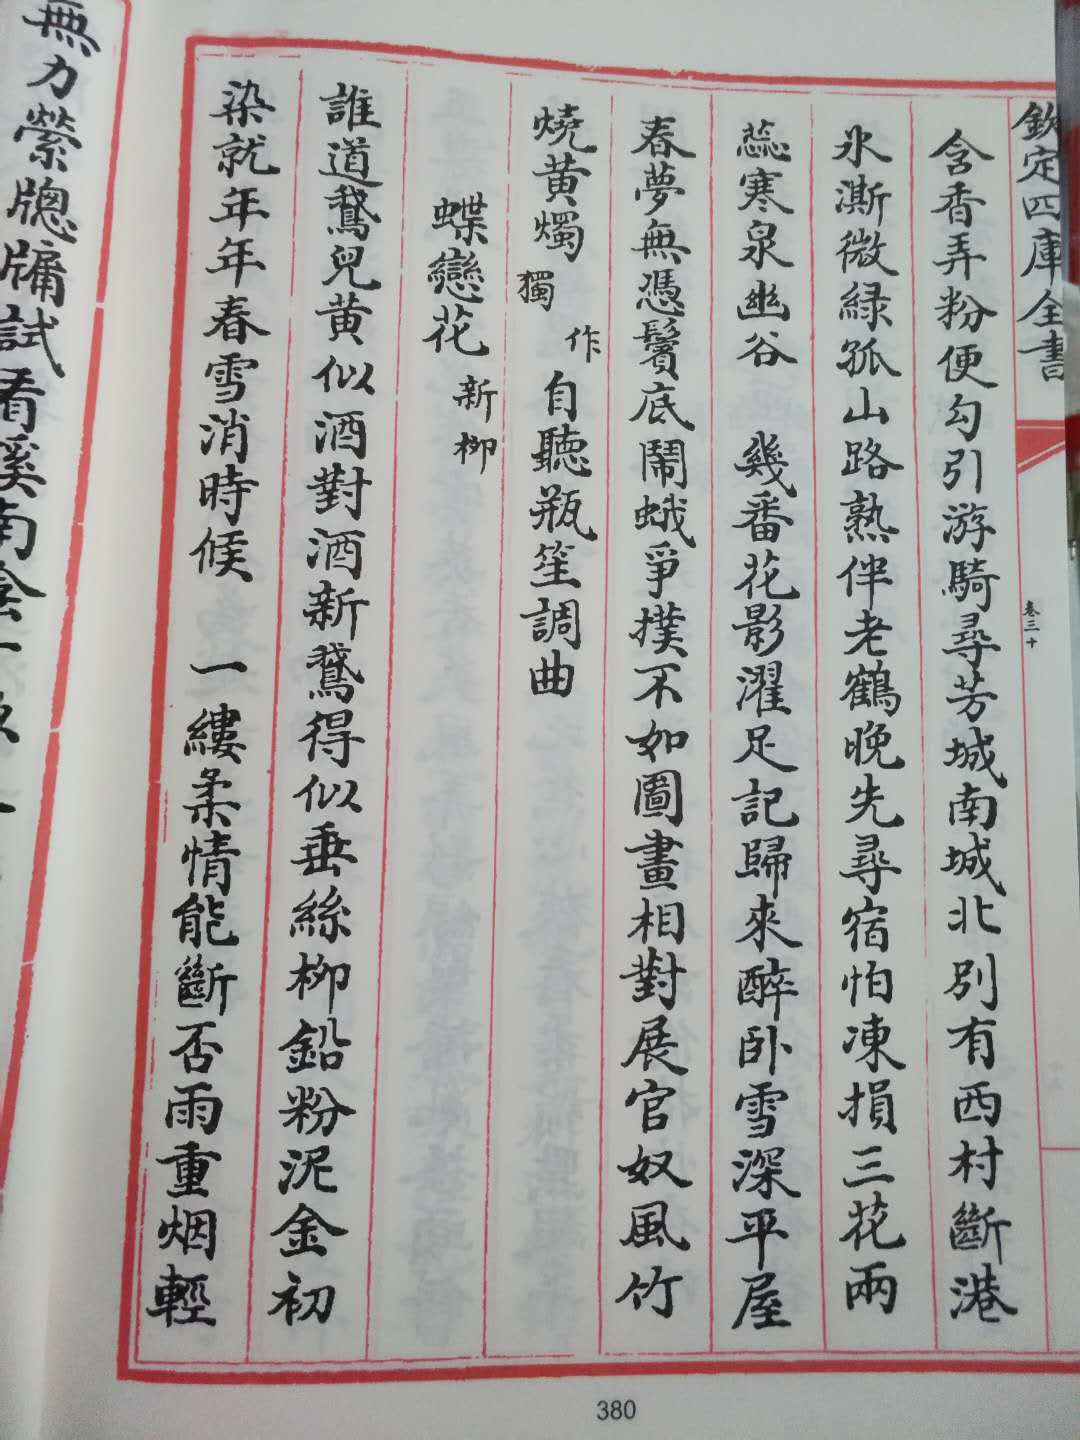 欽定四庫全書
卷三十
含香弄粉便勾引游騎尋芳城南城北別有西村斷港
氷澌微綠孤山路熟伴老鶴晚先尋宿怕凍損三花兩
蕊寒泉幽谷　幾番花影濯足記歸來醉卧雪深平屋
春夢無憑鬢底鬧蛾爭撲不如圖畫相對展官奴風竹
燒黄燭獨作自聽瓶笙調曲
蝶戀花新栁
誰道鵞兒黄似酒對酒新鵞得似垂絲栁鉛粉泥金初
染就年年春雪消時候　一縷柔情能斷否雨重烟輕
無力縈牕牖試看溪南陰一
380